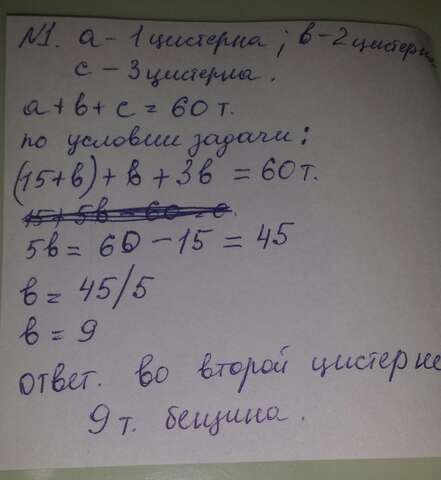 №1. а - 1 цистерна; в - 2 цистерна
с - 3 цистерна.
а + в + с = 60 т.
по условии задачи:
(15+в) + в + 3в = 60 т.
15 + 5в - 60 = 0
5в = 60 - 15 = 45
в = 45/5
в = 9
ответ. во второй цистерне
9 т. бензина.